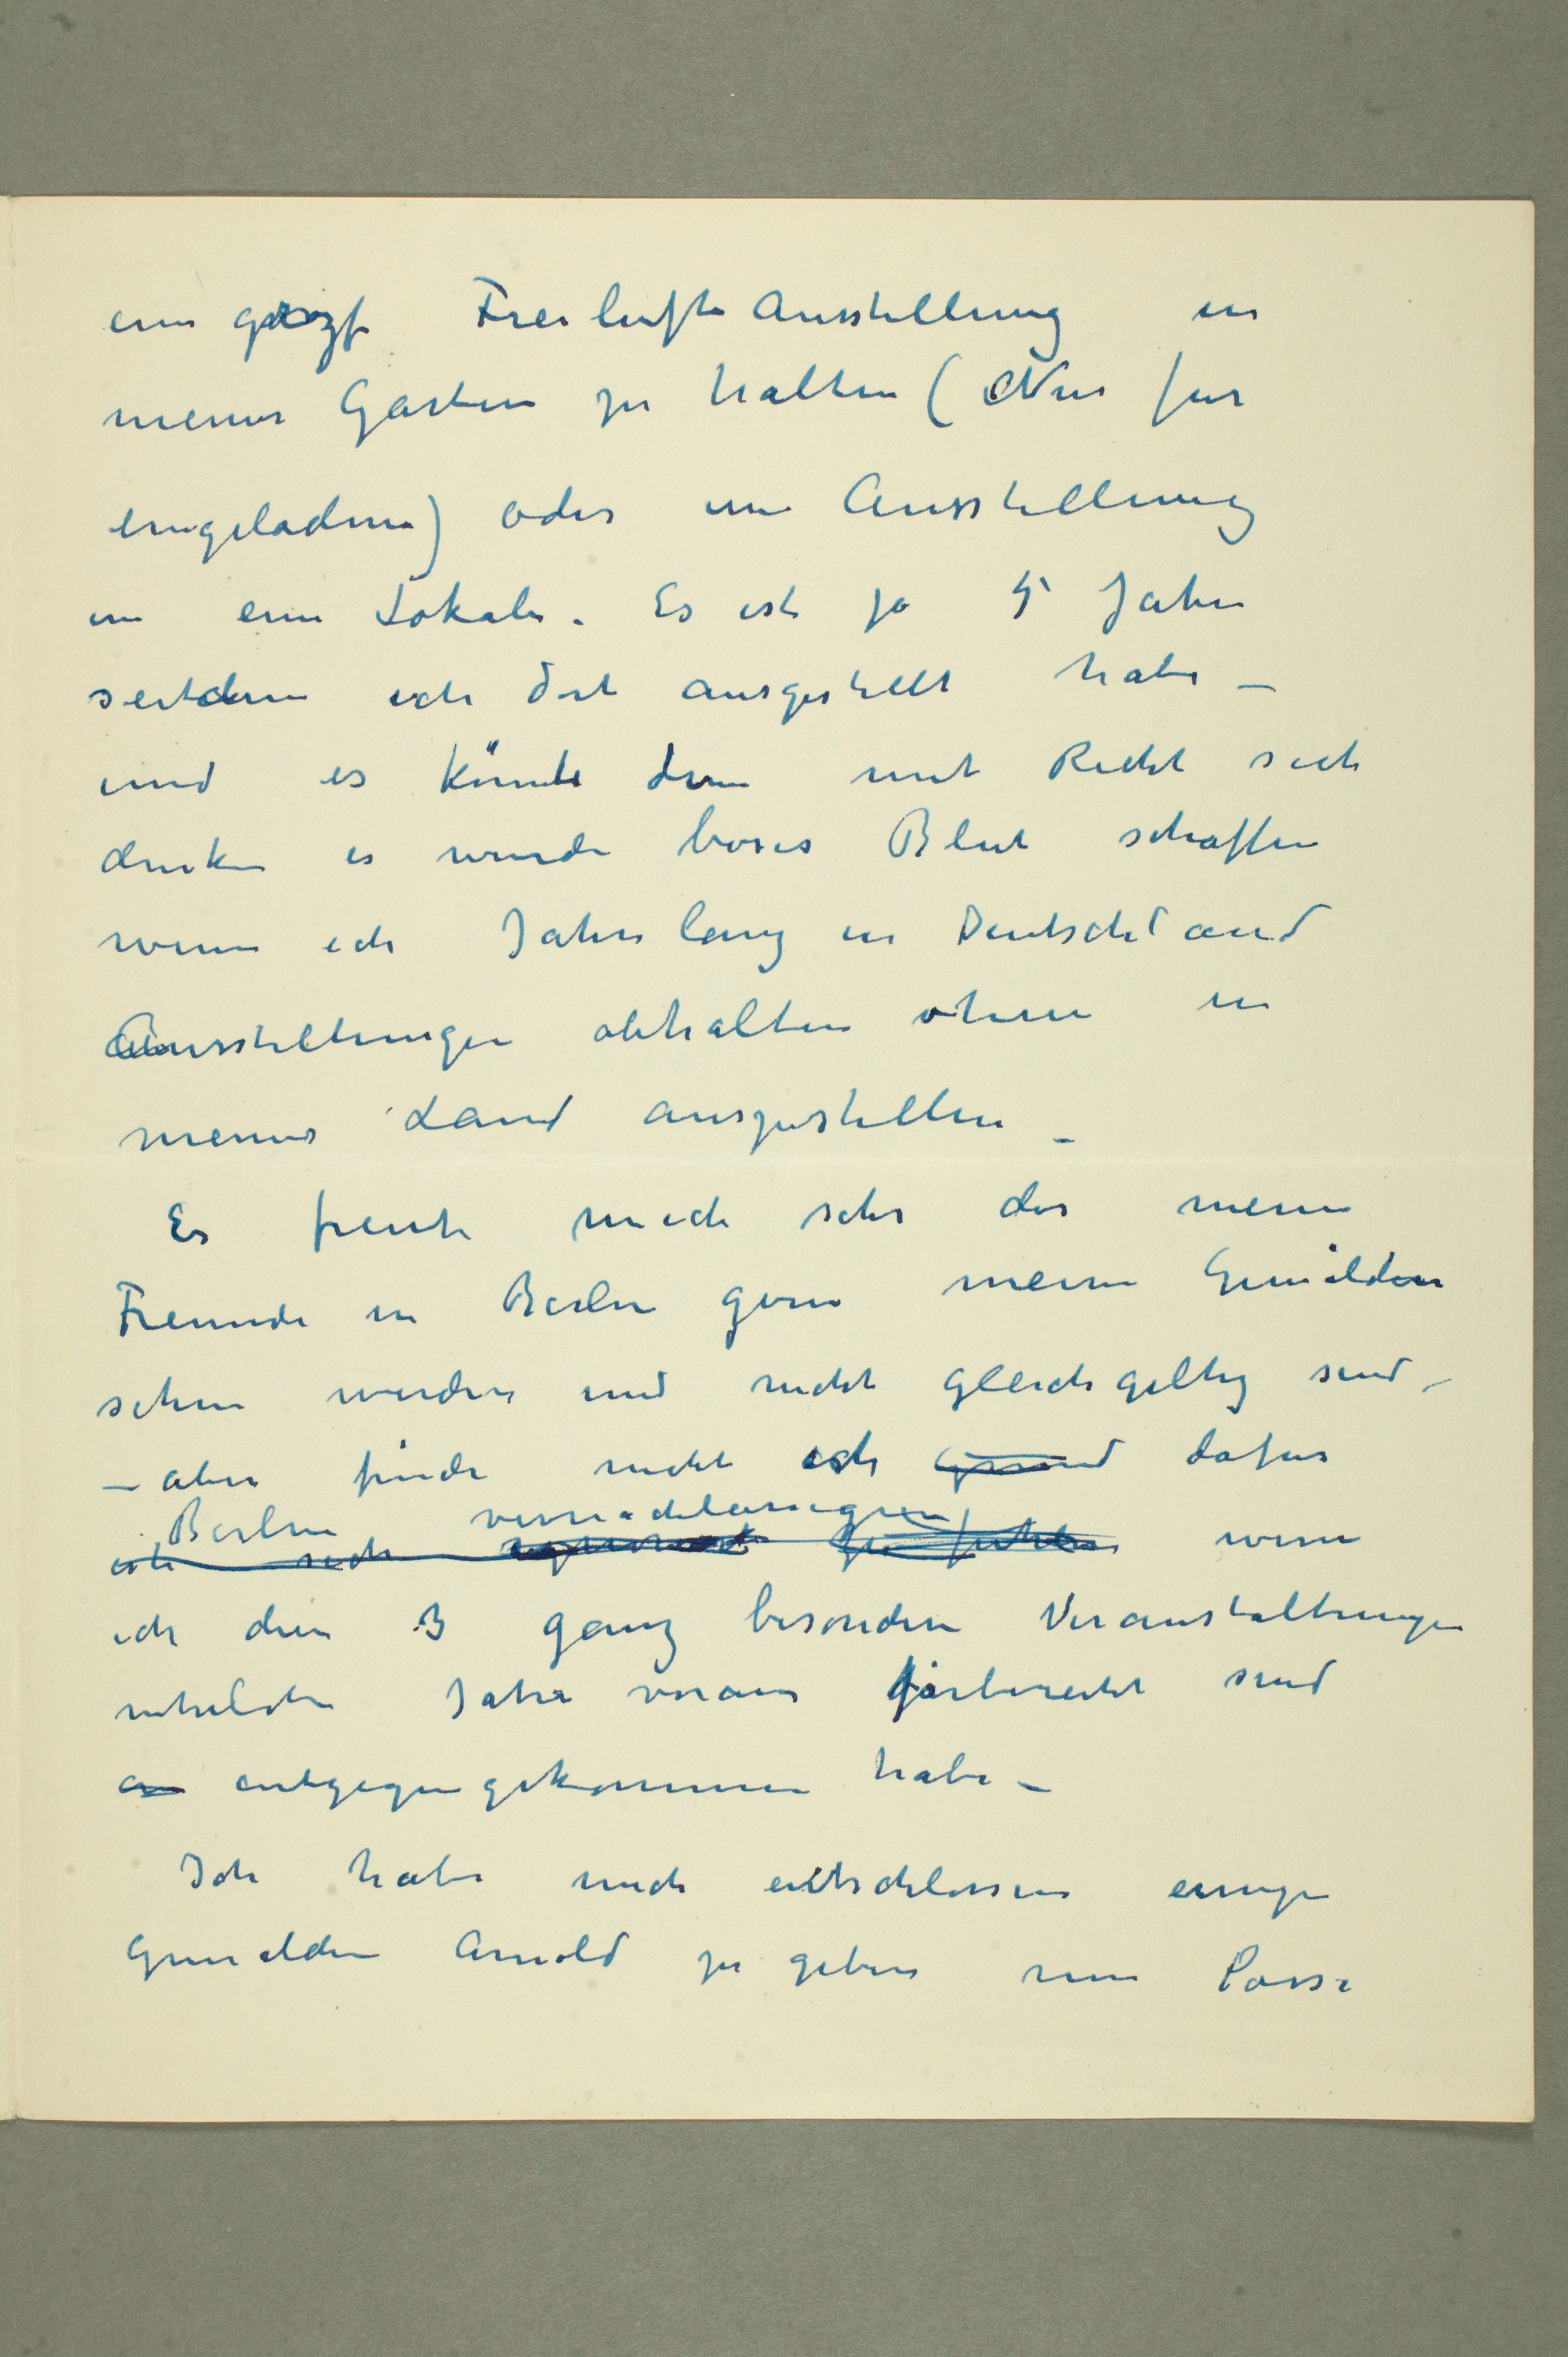 eine große Freiluftsausstellung in
meiner Garten zu halten (Nur für
eingeladene) oder eine Ausstellung
in eine Lokale. Es ist ja 5 Jahre
seitdem ich dort ausgestellt habe –
und es könnte denn mit Recht sich
denken es wurde boses Blut schaffen
wenn ich Jahrelang in Deutschland
Ausstellungen abhalten ohne in
meiner Land auszustellen –
Es freute mich sehr das meine
Freunde in Berlin gern meine Gemälden
sehen werden und nicht gleichgeltig sind –
– aber finde nicht ich Grund dafur
Berlin vernachlässigen
ich sich zu fuhlen wenn
ich den 3 ganz besondere Veranstaltungen
Jahre voraus forbereitet sind
entgegengekommen habe –
Ich habe mich entschlossen einige
Gemälden Arnold zu geben nun lasse